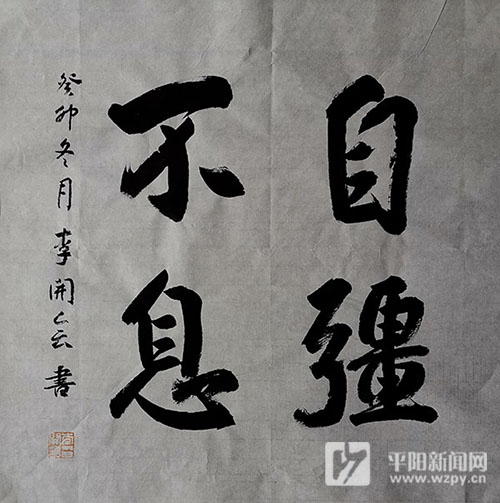 自彊
不息
癸卯冬月李開云書
平阳新闻网
www.wzpy.cn